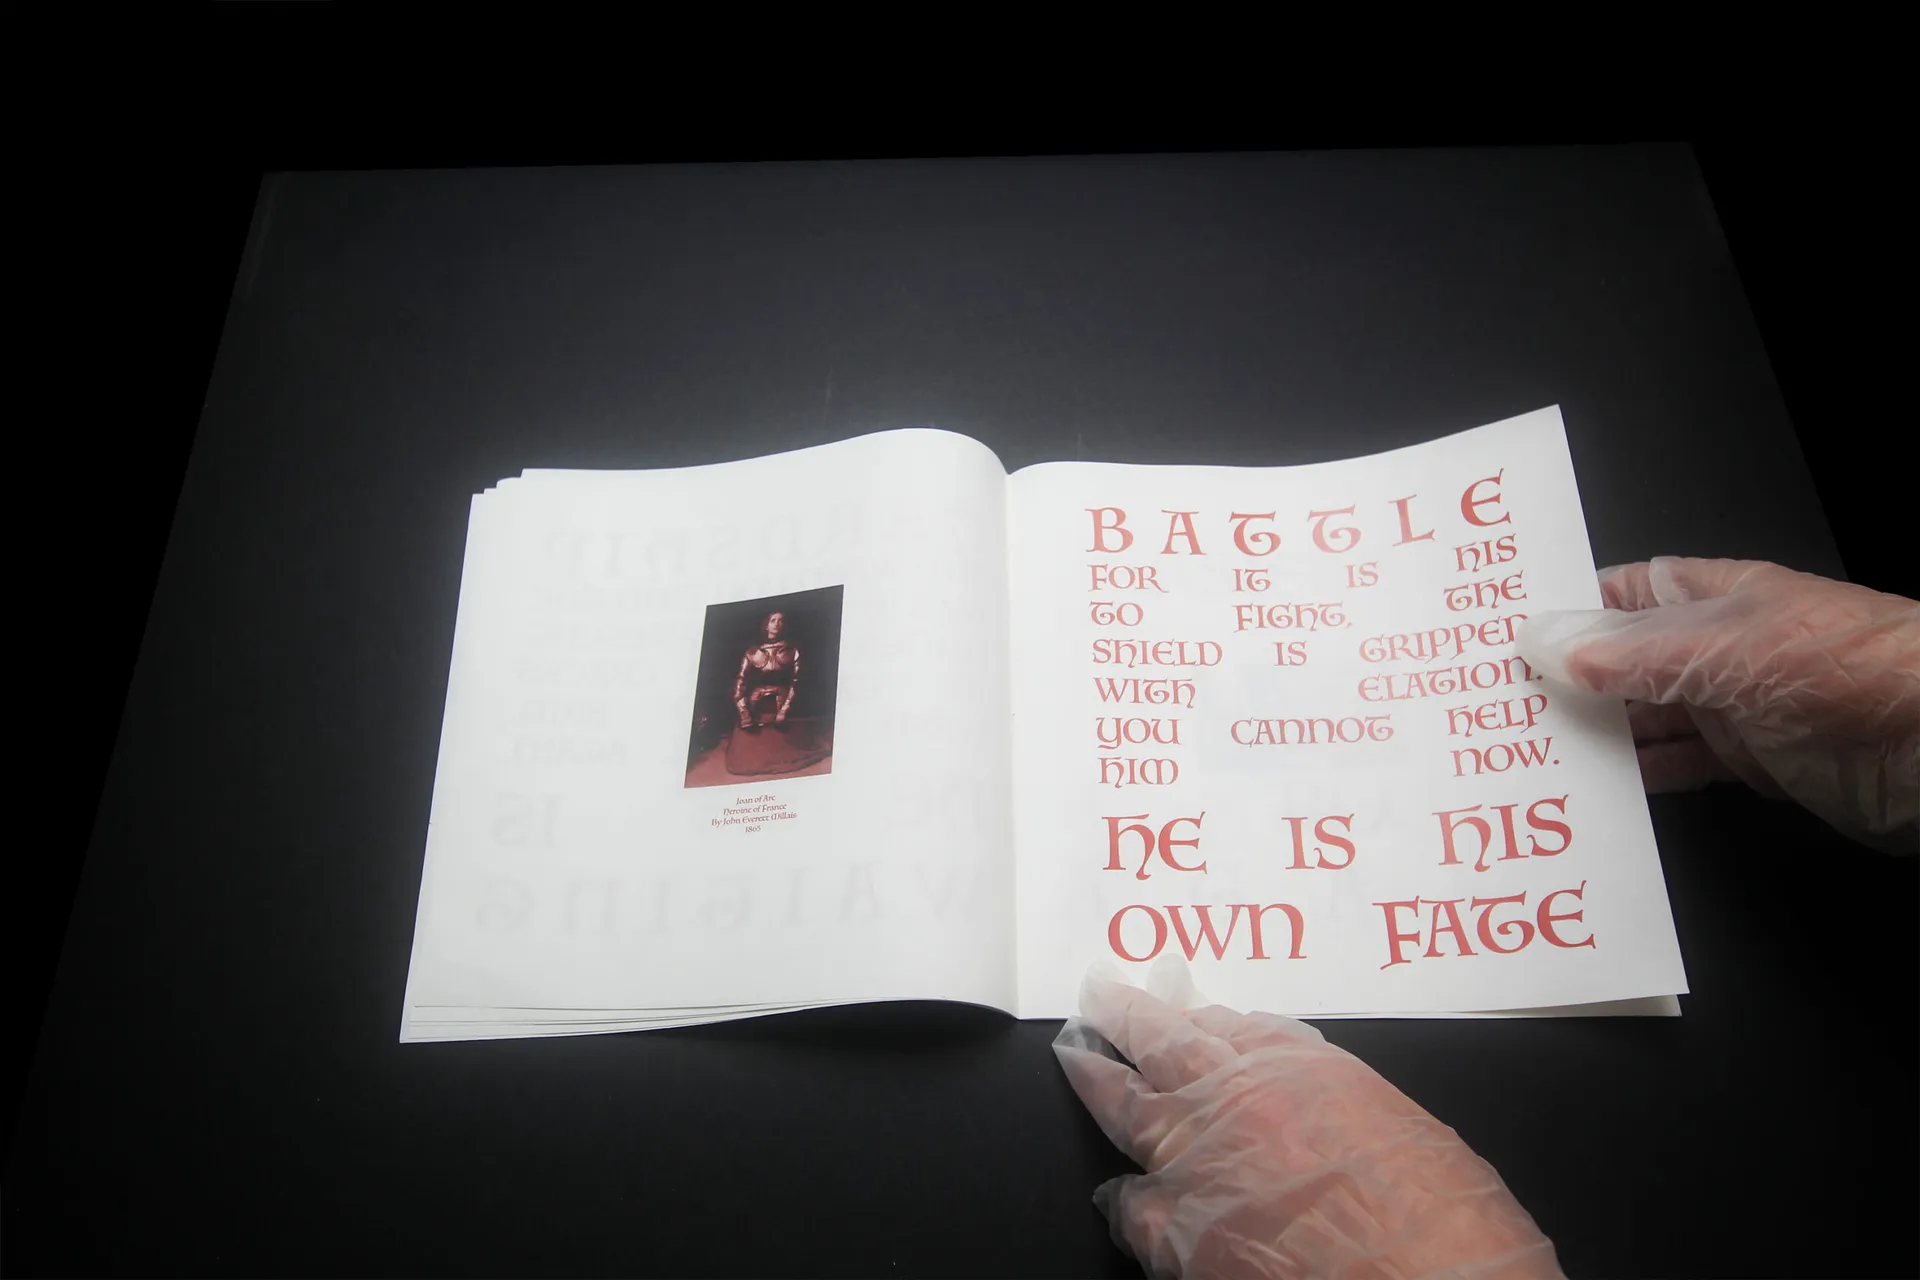 Joan of Arc
Heroine of France
By John Everett Millais
1865
BATTLE
FOR IT IS HIS
TO FIGHT, THE
SHIELD IS GRIPPED
WITH ELATION.
YOU CANNOT HELP
HIM NOW.
HE IS HIS
OWN FATE